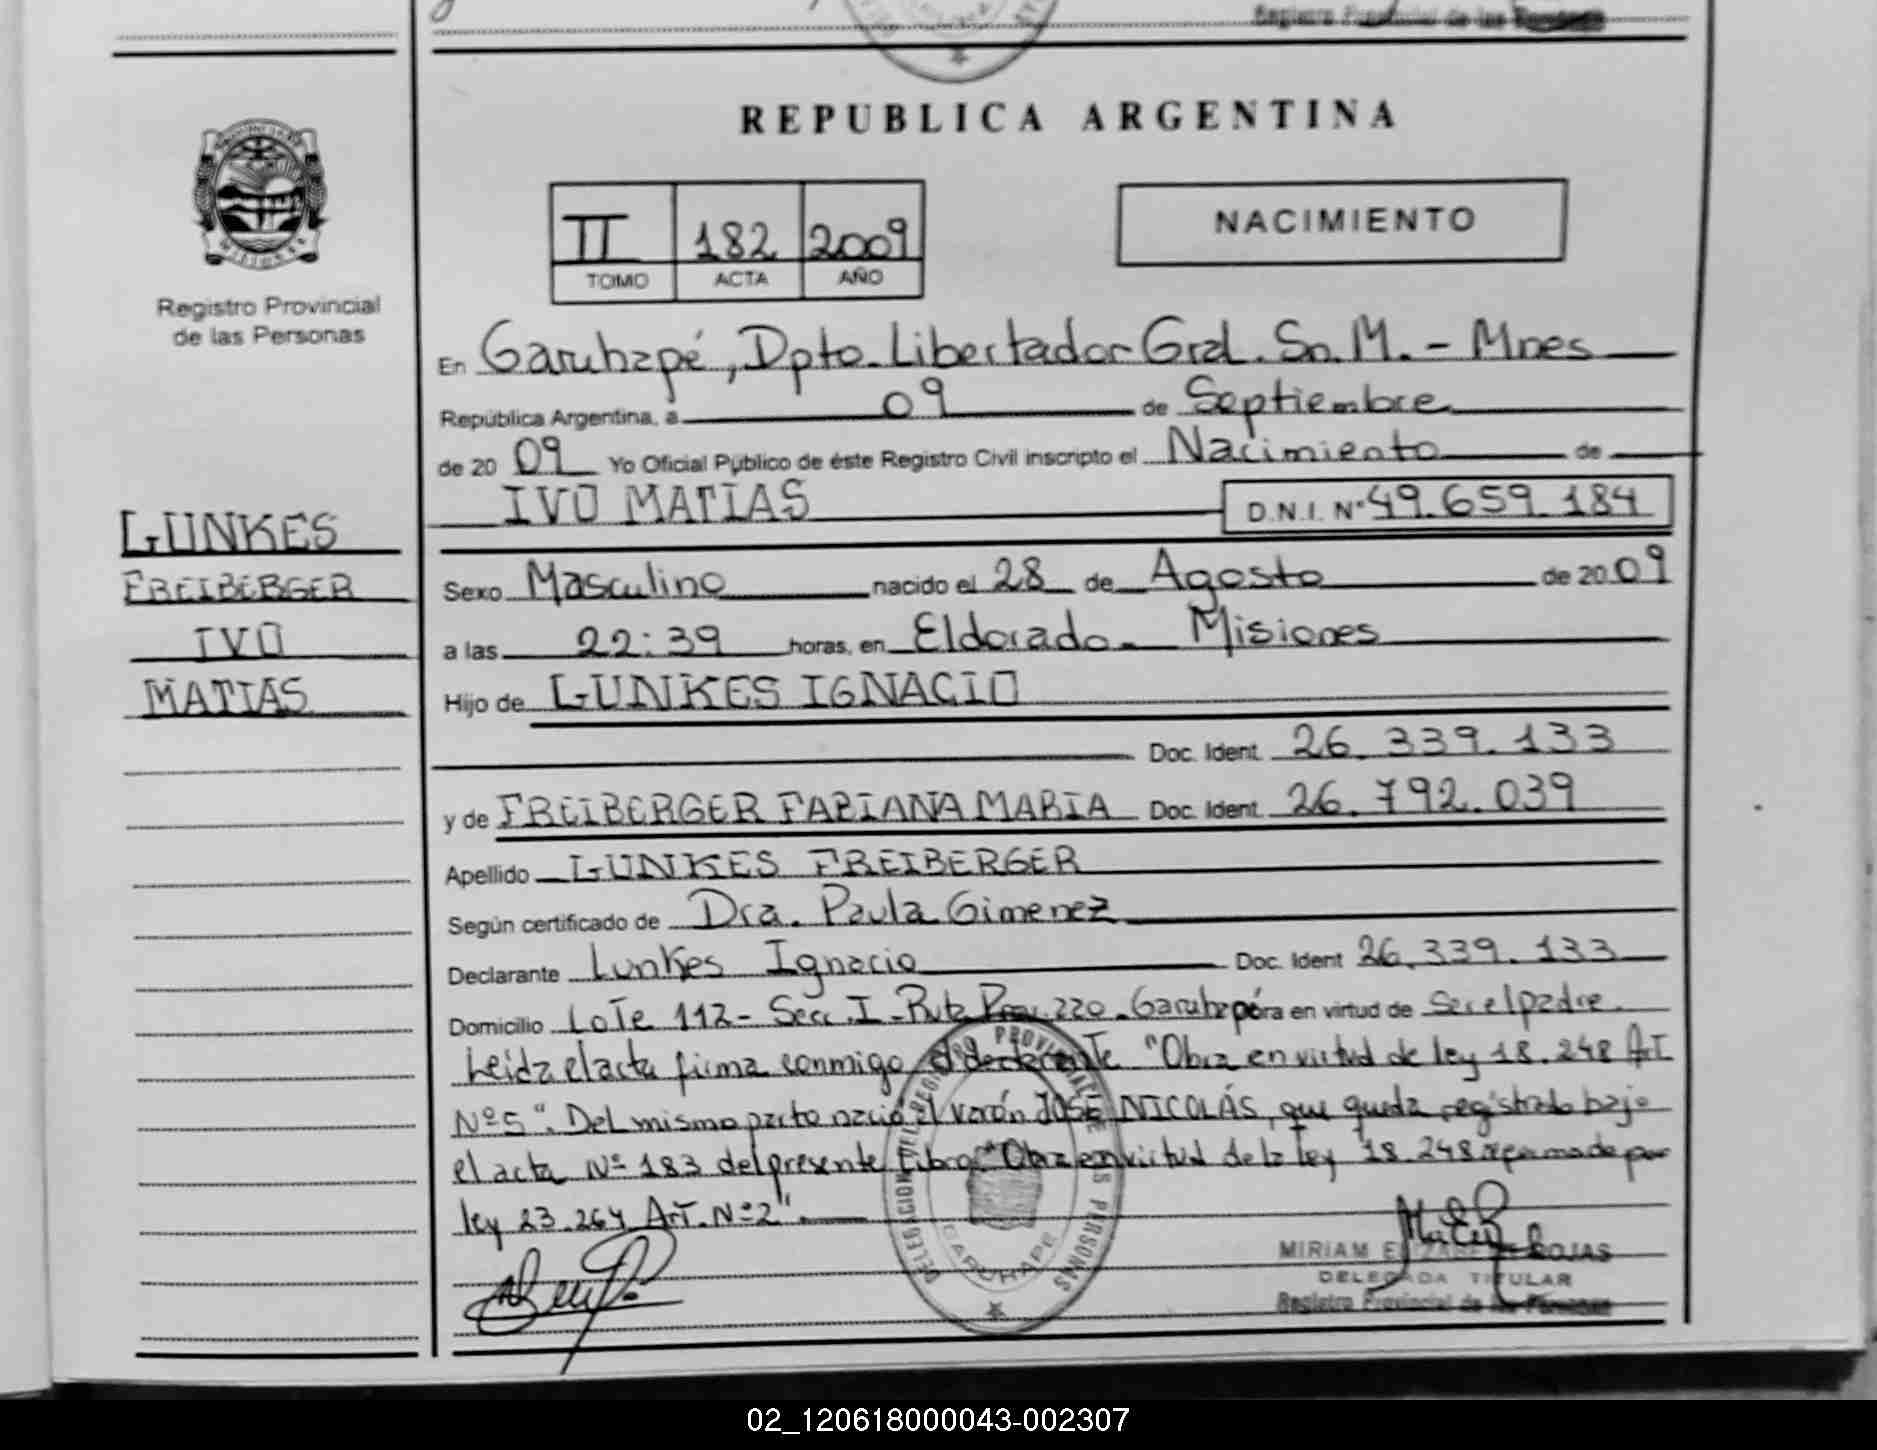 Registro Provincial de las Personas
REPUBLICA ARGENTINA
II 182 2009
TOMO ACTA AÑO
NACIMIENTO
Registro Provincial
de las Personas
En Garuhapé, Dpto. Libertador Gral. Sn. M. - Mnes
República Argentina, a 09 de Septiembre
de 20 09 Yo Oficial Público de éste Registro Civil inscripto el Nacimiento de
IVO MATIAS D.N.I. Nº 49.659.184
LUNKES
FREIBERGER
IVO
MATIAS
Sexo Masculino nacido el 28 de Agosto de 20 09
a las 22:39 horas, en Eldorado - Misiones
Hijo de LUNKES IGNACIO
Doc. Ident. 26.339.133
y de FREIBERGER FABIANA MARIA Doc. Ident. 26.792.039
Apellido LUNKES FREIBERGER
Según certificado de Dra. Paula Gimenez
Declarante Lunkes Ignacio Doc. Ident 26.339.133
Domicilio Lote 112 - Secc. I - Ruta Prov. 220 - Garuhapé Obra en virtud de Ser el padre.
Leida el acta firma conmigo el declarante "Obra en virtud de ley 18.248 Art
Nº 5". Del mismo parto nació el varón JOSÉ NICOLÁS, que queda registrado bajo
el acta Nº 183 del presente Libro. "Obra en virtud de la ley 18.248 reformada por
ley 23.264 Art. Nº 2".
DELEGACION DEL REGISTRO PROVINCIAL DE LAS PERSONAS
GARUHAPE
MIRIAM ELIZABETH ROJAS
DELEGADA TITULAR
Registro Provincial de las Personas
02_120618000043-002307